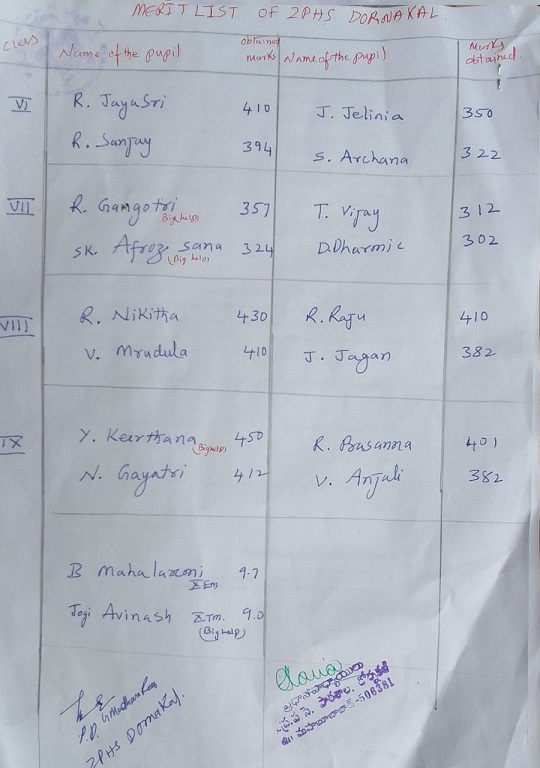 MERIT LIST OF ZPHS DORNAKAL.
Class Name of the pupil obtained marks Name of the pupil Marks obtained.
VI R. Jayasri 410 J. Jelinia 350
R. Sanjay 394 S. Archana 322
VII R. Gangotri 357 T. Vijay 312
(Big help)
SK. Afroz sana 324 D.Dharmic 302
(Big help)
VIII R. Nikitha 430 R. Raju 410
V. Mrudula 410 J. Jagan 382
IX Y. Keerthana (Bighelp) 450 R. Prasanna 401
N. Gayatri 412 V. Anjali 382
B Mahalaxmi 9.7
X Em
Jogi Avinash X Tm. 9.0
(Big help)
ZPHS Dornakal.
ప్రధానోపాధ్యాయులు
506381